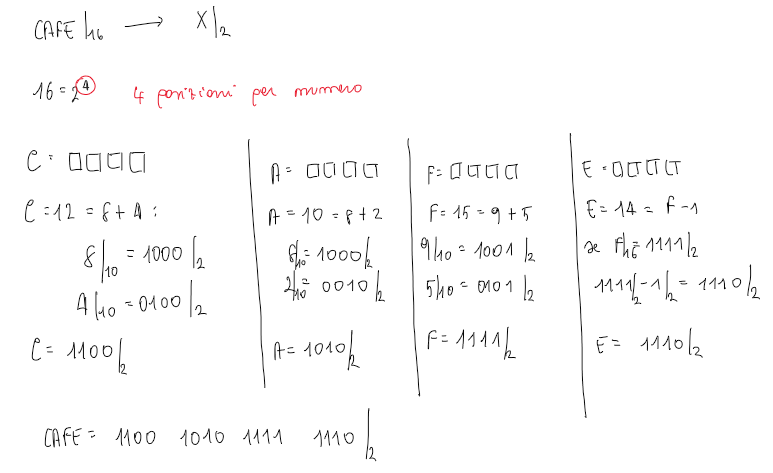 CAFE|16 → X|2
16 = 2^4 4 posizioni per numero
C = □□□□
C = 12 = 8 + 4 :
8|10 = 1000|2
4|10 = 0100|2
C = 1100|2
A = □□□□
A = 10 = 8 + 2
8|10 = 1000|2
2|10 = 0010|2
A = 1010|2
F = □□□□
F = 15 = 9 + 5
9|10 = 1001|2
5|10 = 0101|2
F = 1111|2
E = □□□□
E = 14 = F - 1
se F|16 = 1111|2
1111|2 - 1|2 = 1110|2
E = 1110|2
CAFE = 1100 1010 1111 1110|2